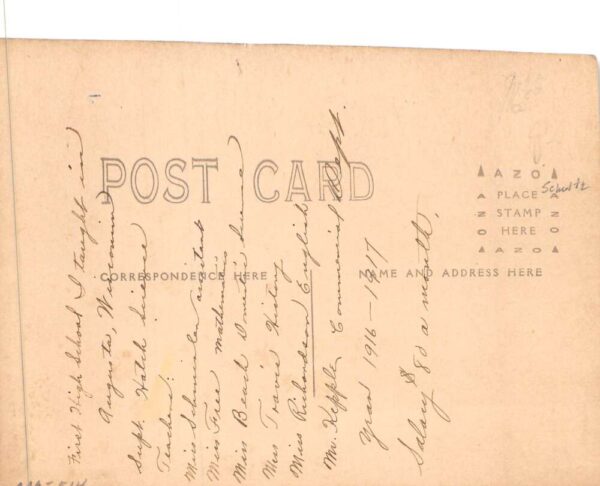 POST CARD
CORRESPONDENCE HERE
NAME AND ADDRESS HERE
AZO
PLACE
STAMP
HERE
AZO
Schultz
First High School I taught in
Augusta, Wisconsin
Supt. Hatch Science
Teachers:
Miss Schmieler assistant
Miss Free Mathematics
Miss Beach Domestic Science
Miss Travis History
Miss Richardson English
Mr. Kepple, Commercial Dept.
Year 1916-1917
Salary $80 a month.